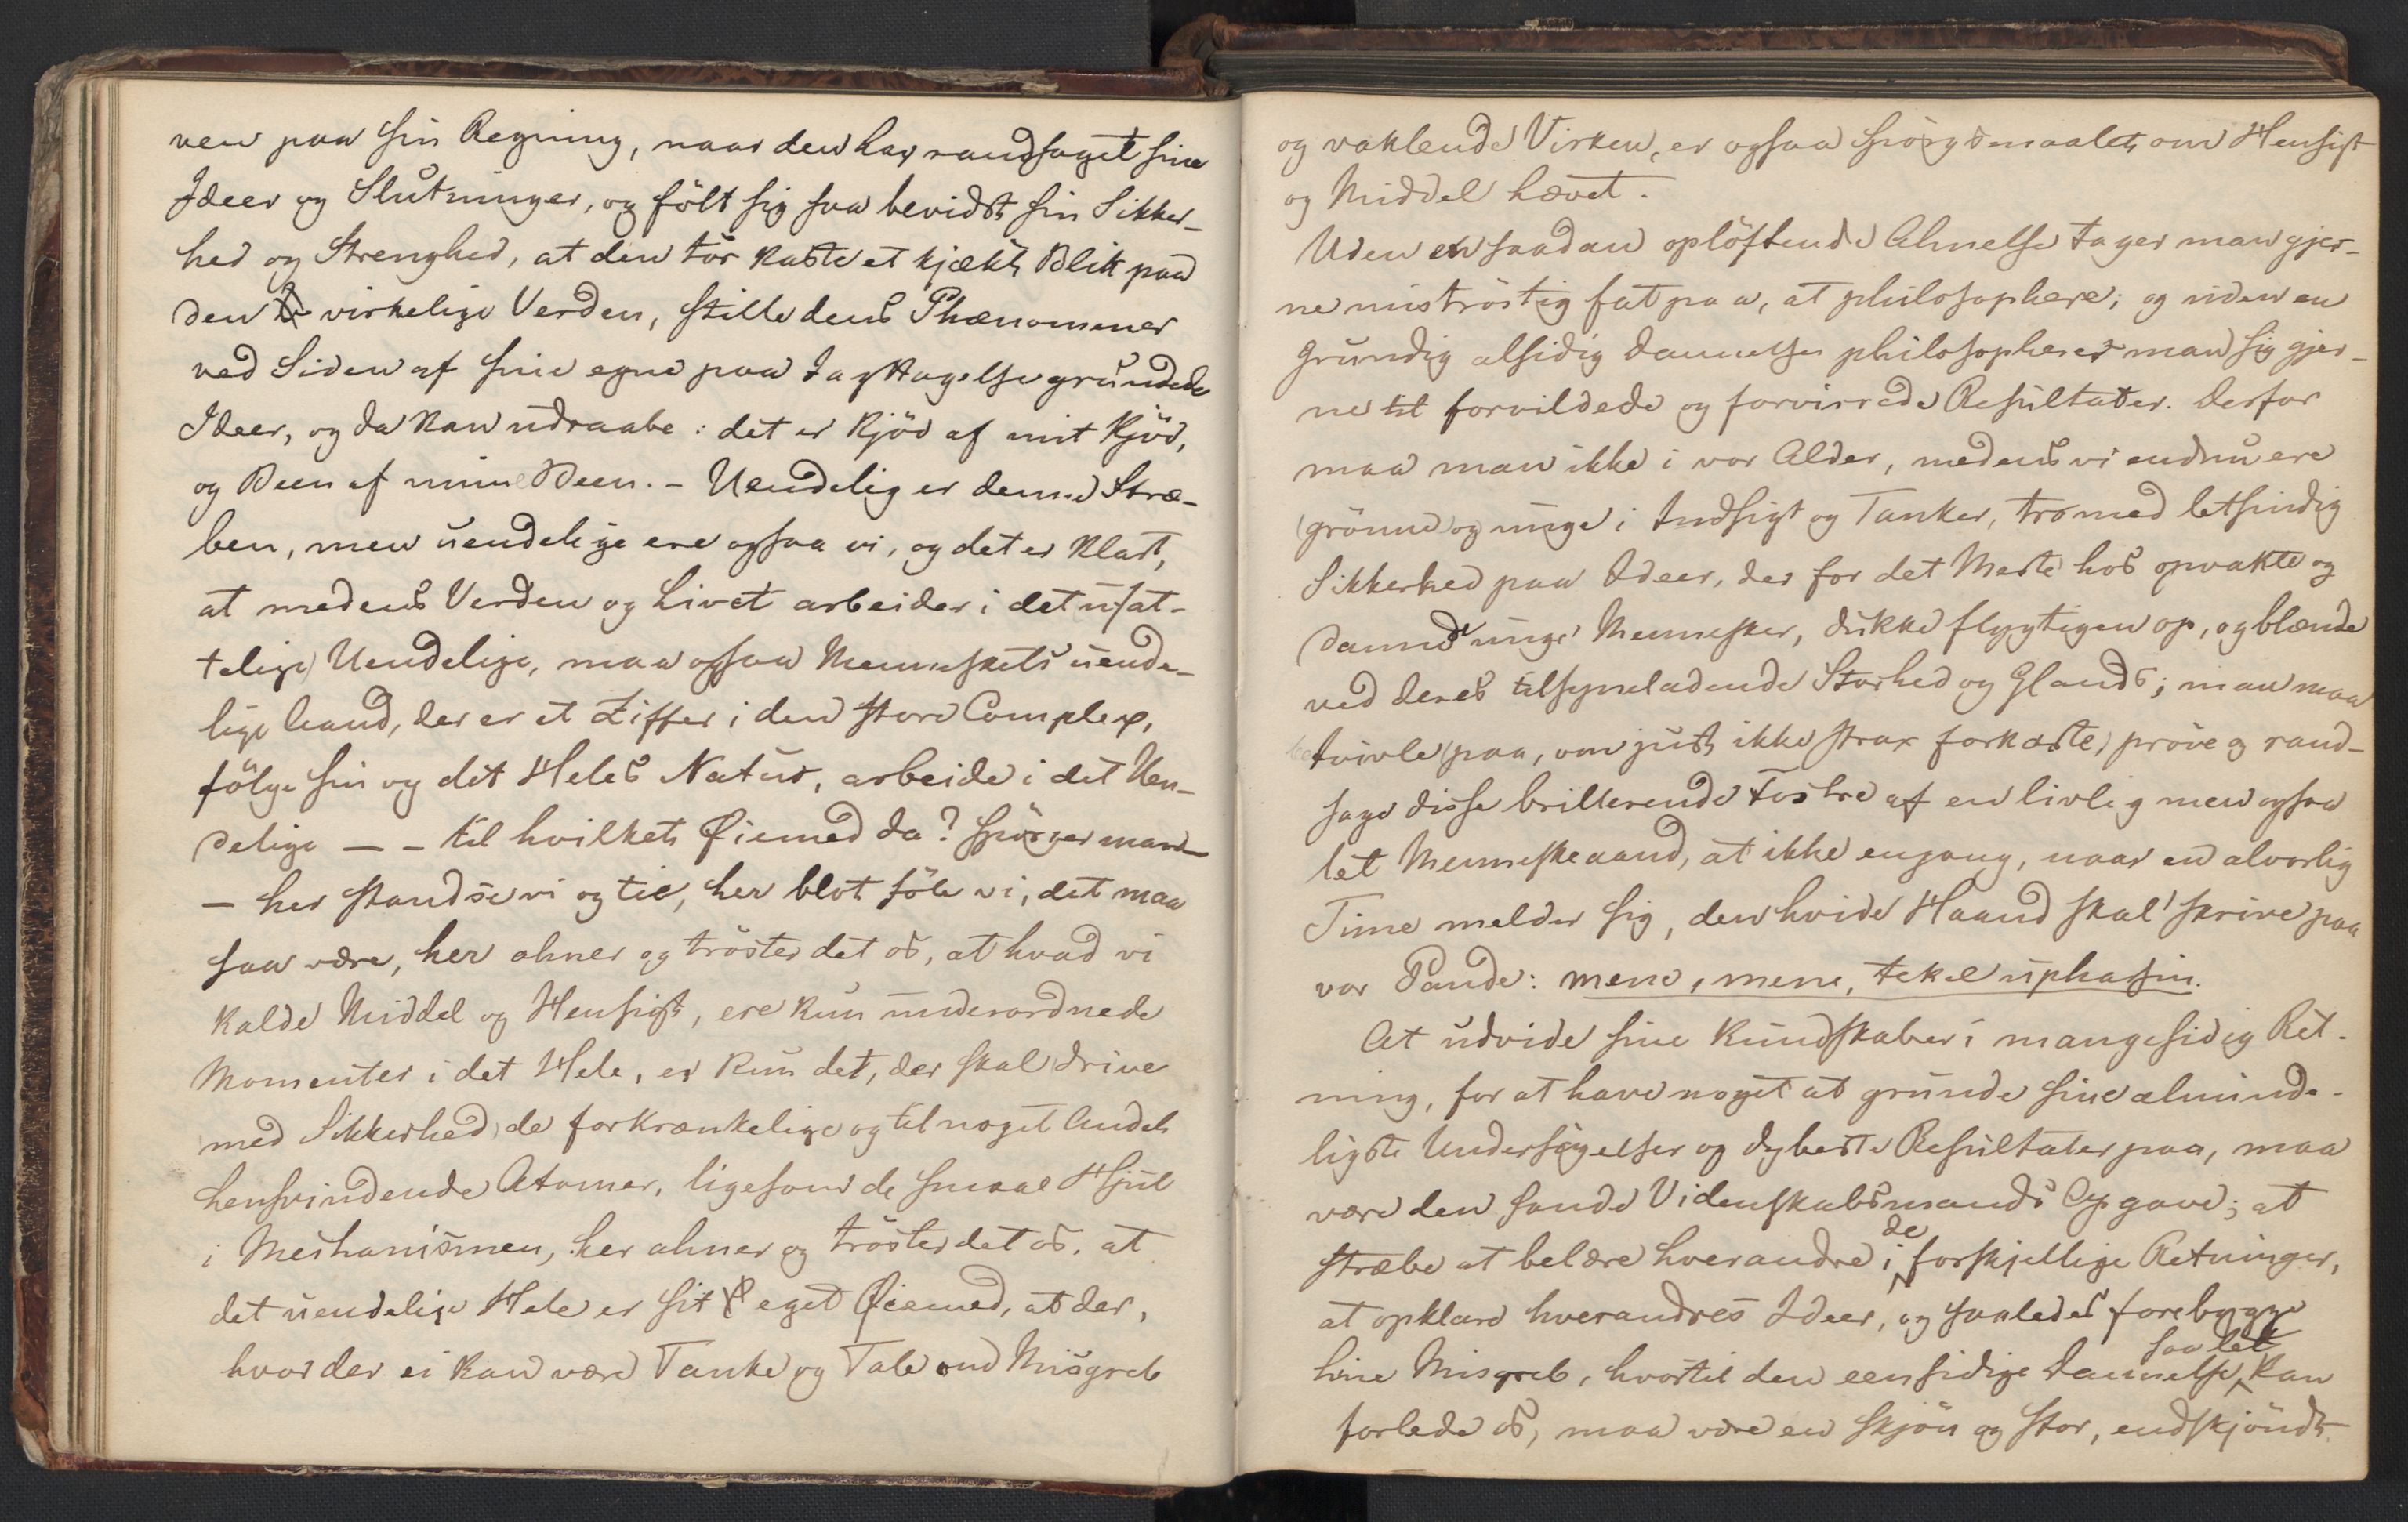 ven paa sin Regning, naar den har randsaget sine
Ideer og Slutninger, og fölt sig saa bevidst sin Sikker-
hed og Strenghed, at den tör kaste et kjækt Blik paa
den virkelige Verden, stille dens Phænomener
ved Siden af sine egne paa Iagttagelse grundede
Ideer, og da kan udraabe: det er Kjöd af mit Kjöd,
og Been af mine Been. - Uendelig er denne Stræ-
ben, men uendelige ere ogsaa vi, og det er klart,
at medens Verden og Livet arbeider i det ufat-
telige Uendelige, maa ogsaa Menneskets uende-
lige Aand, der er et Ziffer i den store Complex,
fölge sin og det Heles Natur, arbeide i det Uen-
delige — – til hvilket Øiemed da? spörger man –
— her standse vi og tie, her blot föle vi, det maa
saa være, her ahner og tröster det os, at hvad vi
kalde Middel og Hensigt, ere kun underordnede
Momenter i det Hele, er kun det, der skal drive
med Sikkerhed de forkrænkelige og til noget Andet
hensvindende Atomer, ligesom de smaae Hjul
i Mechanismen, her ahner og tröster det os, at
det uendelige Hele er sit eget Øiemed, at der,
hvor der ei kan være Tanke og Tale om Misgreb
og vaklende Virken, er ogsaa Spörgsmaalet om Hensigt
og Middel hævet.
Uden en saadan oplöftende Ahnelse tager man gjer-
ne miströstig fat paa, at philosophere; og uden en
grundig alsidig Dannelse philosopherer man sig gjer-
ne til forvildede og forvirrede Resultater. Derfor
maa man ikke i vor Alder, medens vi endnu ere
grönne og unge i Indsigt og Tanker, tro med letsindig
Sikkerhed paa Ideer, der for det Meste hos opvakte og
dannede unge Mennesker, dukke flygtigen op, og blænde
ved deres tilsyneladende Storhed og Glands; man maa
tvivle paa, om just ikke strax forkaste, pröve og rand-
sage disse brillerende Fostre af en livlig men ogsaa
let Menneskeaand, at ikke engang, naar en alvorlig
Time melder sig, den hvide Haand skal skrive paa
vor Pande: mene, mene, tekel uphasin.
At udvide sine Kundskaber i mangesidig Ret-
ning, for at have noget at grunde sine alminde-
ligste Undersögelser og dybeste Resultater paa, maa
være den sande Videnskabsmands Opgave; at
stræbe at belære hverandre i de forskjellige Retninger,
at opklare hverandres Ideer, og saaledes forebygge
hine Misgreb, hvortil den eensidige Dannelse saa let kan
forlede os, maa være en skjön og stor, endskjöndt